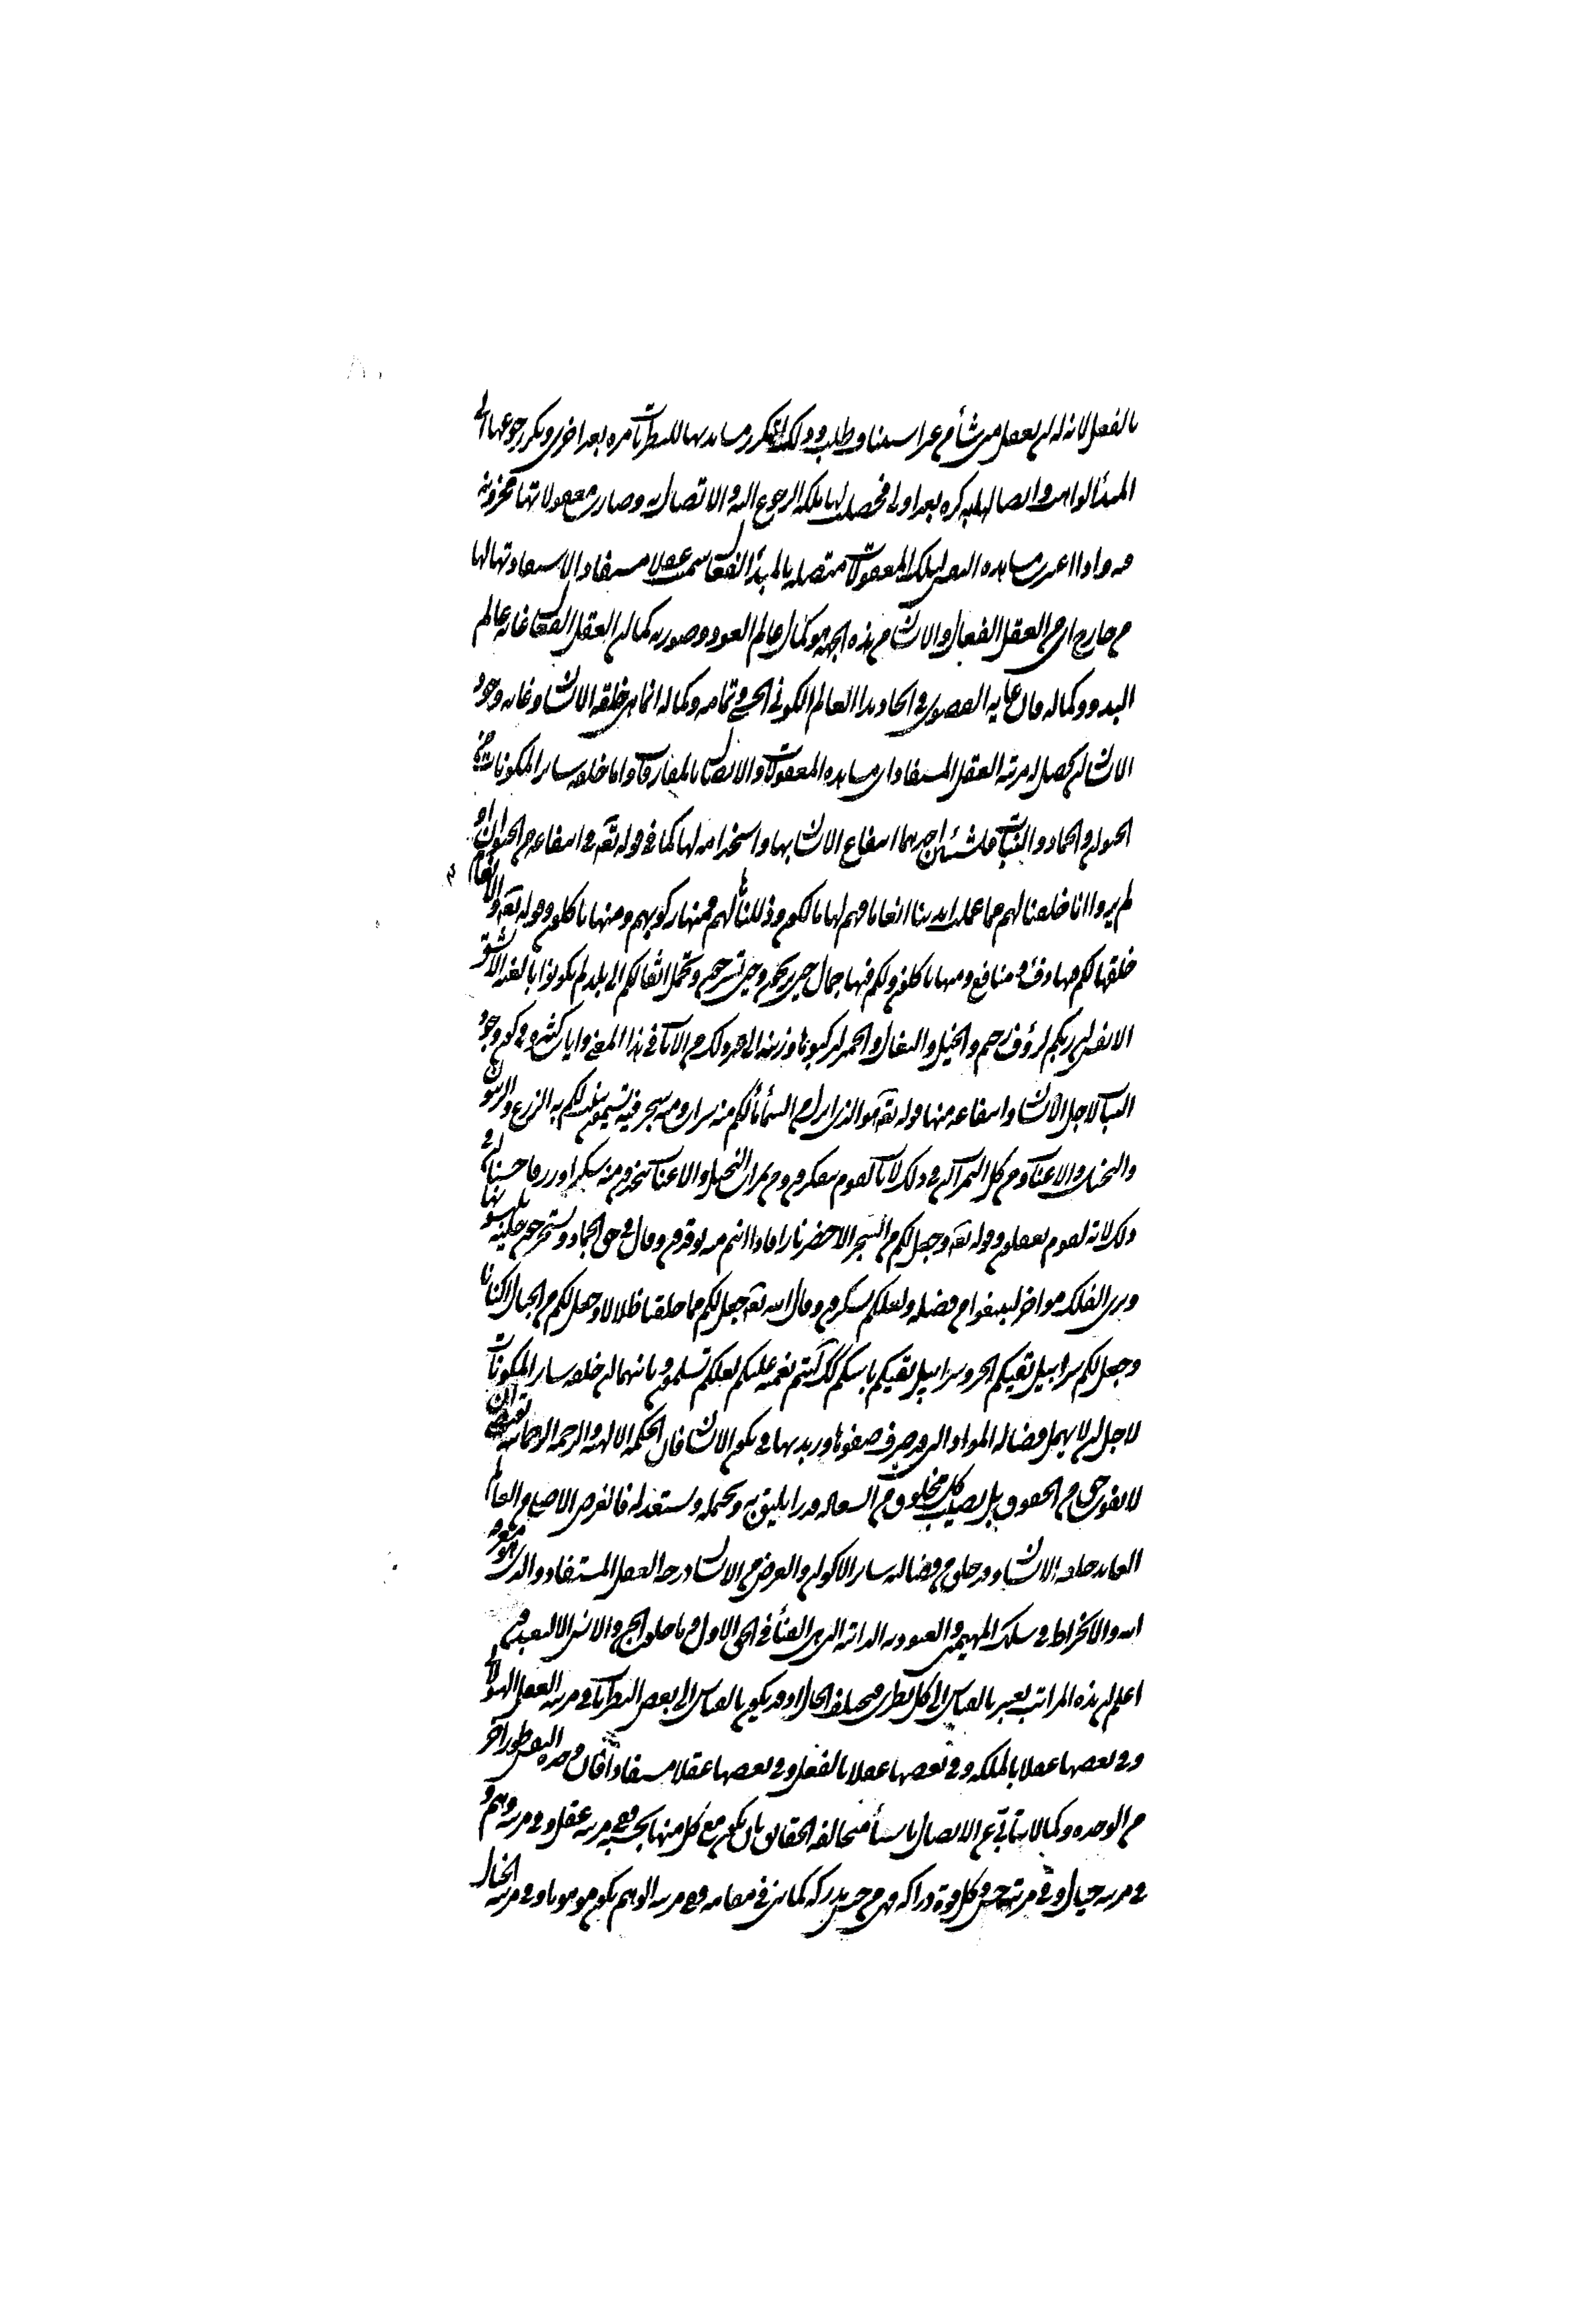 بالفعل لان له ان يعقل متى شاء من غير استيناف وطلب وذلك لتكرر مشاهدتها للنظريات مرة بعد اخرى وتكرر رجوعها الى
المبدأ الواهب واتصالها به كرة بعد اولى فحصلت لها ملكة الرجوع اليه والاتصال به وصارت معقولاتها مخزونة
فيه واذا اعتبرت مشاهدة النفس لتلك المعقولات متصلة بالمبدأ الفعال سميت عقلا مستفادا لاستفادتها لها
من خارج اى من العقل الفعال والانسان من هذه الجهة هو كمال عالم العود وصورته كما ان العقل الفعال غاية عالم
البدو وكماله فان غاية القصوى فى ايجاد هذا العالم الكونى الحسى وتمامه وكماله انما هى خلقة الانسان وغاية وجود
الانسان ان يحصل له مرتبة العقل المستفاد اى مشاهدة المعقولات والاتصال بالمفارقات واما خلقة ساير المكونات من
الحيوان والجماد والنبات فلشيئين احدهما انتفاع الانسان بها واستخدامه لها كما فى قوله تعه فى انتفاعه من الحيوان او
لم يروا انا خلقنا لهم مما عملت ايدينا انعاما فهم لها مالكون وذللناها لهم فمنها ركوبهم ومنها ياكلون وقوله تعه والانعام
خلقها لكم فيها دفء ومنافع ومنها تاكلون ولكم فيها جمال حين تريحون وحين تسرحون وتحمل اثقالكم الى بلد لم تكونوا بالغيه الا بشق
الانفس ان ربكم لرؤف رحيم والخيل والبغال والحمير لتركبوها وزينة الى غير ذلك من الآيات فى هذا المعنى وايات كثيرة فى كون وجود
النبات لاجل الانسان وانتفاعه منها قوله تعه هو الذى انزل من السماء ماء لكم منه شراب ومنه شجر فيه تسيمون ينبت لكم به الزرع والزيتون
والنخيل والاعناب ومن كل الثمرات ان فى ذلك لايات لقوم يتفكرون ومن ثمرات النخيل والاعناب تتخذون منه سكرا ورزقا حسنا ان فى
ذلك لاية لقوم يعقلون وقوله تعه وجعل لكم من الشجر الاخضر نارا فاذا انتم منه توقدون وقال فى حق الجماد وتستخرجون حلية تلبسونها
وترى الفلك مواخر لتبتغوا من فضله ولعلكم تشكرون وقال الله تعه جعل لكم مما خلق ظلالا وجعل لكم من الجبال اكنانا
وجعل لكم سرابيل تقيكم الحر وسرابيل تقيكم باسكم كذلك يتم نعمته عليكم لعلكم تسلمون وثانيهما ان خلقة ساير المكونات
لاجل ان لا يهمل فضالة المواد التى قد صرف صفوها وزبدتها فى تكون الانسان فان الحكمة الالهية والرحمة الرحمانية تقتضى ان
لا يفوت حق من الحقوق بل يصيب كل مخلوق من السعادة قدرا يليق به ويحتمله ويستعد له فالغرض الاصلى من العالم
العايد خلقة الانسان وقد خلق من فضالته ساير الاكوان والغرض من الانسان درجة العقل المستفاد والذى هو معرفة
الله والانخراط فى سلك المهيمين والعبودية الذاتية التى هى الفناء فى الحق الاول وما خلقت الجن والانس الا ليعبدون
اعلم ان هذه المراتب تعتبر بالقياس الى كل نظرى فيختلف الحال اذ قد يكون بالقياس الى بعض النظريات فى مرتبة العقل الهيولانى
وفى بعضها عقلا بالملكة وفى بعضها عقلا بالفعل وفى بعضها عقلا مستفادا فان وحدة النفس طور اخر
من الوحدة وكمالاتها تأتى عن الاتصال باشياء متخالفة الحقايق بان يكون مع كل منها بحسبه فهى مرتبة عقل وفى مرتبة وهم و
فى مرتبة خيال وفى مرتبة حس وكل قوة دراكة فهى من جنس مدركه كما بين فى مقامه ففى مرتبة الوهم يكون موهوما وفى مرتبة الخيال